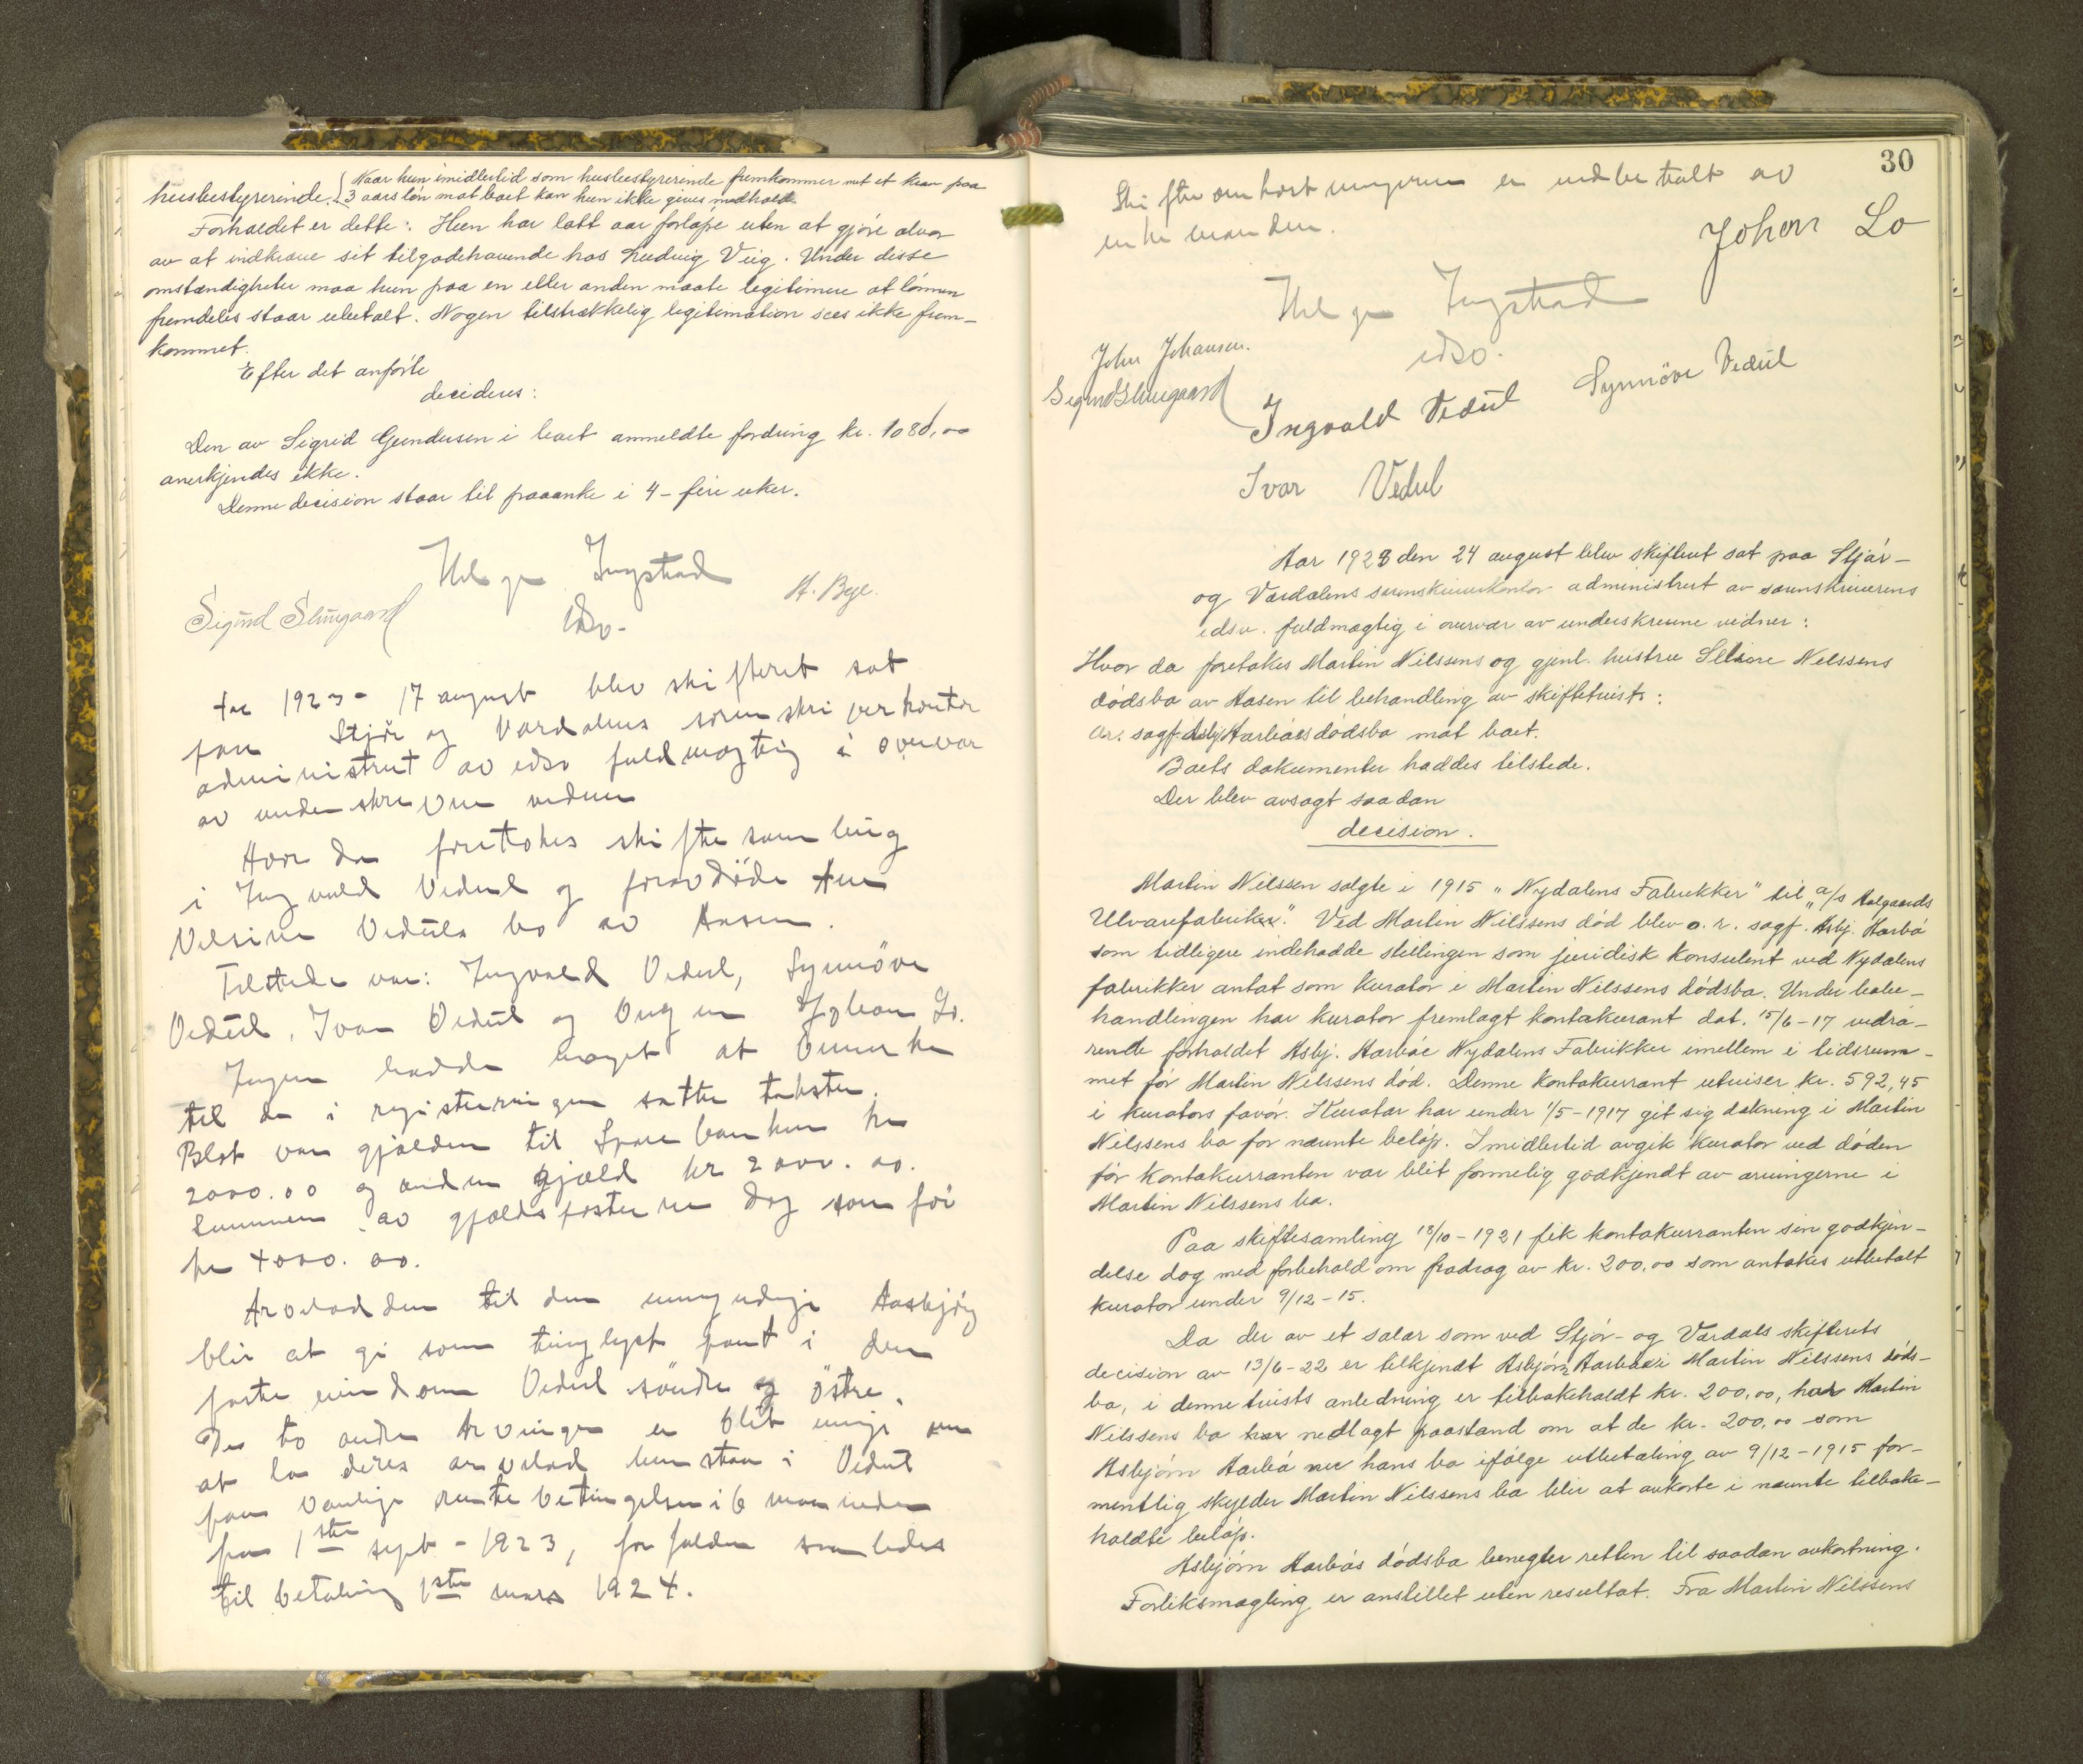 husbestyrerinde. { Naar hun imidlertid som husbestyrerinde fremkommer met et krav paa
3 aars løn mot boet kan hun ikke gives medhold.
Forholdet er dette: Hun har latt aar forløpe uten at gjøre alvor
av at indkræve sit tilgodehavende hos Ludvig Veig. Under disse
omstændigheter maa hun paa en eller anden maate legitimere at lønnen
fremdeles staar ubetalt. Nogen tilstrækkelig legitimation sees ikke frem-
kommet.
Efter det anførte
decideres:
Den av Sigrid Gundersen i boet anmeldte fordring kr. 1080,00
anerkjendes ikke.
Denne decision staar til paaanke i 4 - fire uker.
Helge Ingstad
edsv.
A. Bye.
Sigurd Slungaard
Aar 1923 - 17 august blev skifteret sat
paa Stjør og Værdalens sorenskriverkontor
administrert av edsv fuldmægtig i overvær
av underskrevne vidner
Hvor da foretokes skiftesamling
i Ingvald Veduls og foravdøde Ane
Velsine Veduls bo av Aasen.
Tilstede var: Ingvald Vedul, Synnøve
Vedul, Ivar Vedul og Vergen Johan Lo.
Ingen hadde noget at bemerke
til de i registreringen satte takster.
Blot var gjælden til Sparebanken kr
2000.00 og anden gjæld kr 2000.00.
Summen av gjældsposterne dog som før
kr 4000.00.
Arvelodden til den umyndige Aasbjørg
blir at gi som tinglyst pant i den
faste eiendom Vedul søndre og østre.
De to andre Arvinger er blit enige om
at la deres arvelod henstaa i Vedul
paa vanlige rentebetingelser i 6 maaneder
fra 1ste sept - 1923, forfalden saaledes
til betaling 1ste mars 1924.
30
Skifteomkostningerne er indbetalt av
enkemanden.
Johan Lo
Helge Ingstad
edsv.
John Johansen.
Sigurd Slungaard
Ingvald Vedul Synnöve Vedul
Ivar Vedul
Aar 1923 den 24 august blev skifteret sat paa Stjør-
og Værdalens sorenskriverkontor administrert av sorenskriverens
edsv. fuldmægtig i overvær av underskrevne vidner:
Hvor da foretokes Martin Nilssens og gjenl. hustru Nilssens
dødsbo av Aasen til behandling av skiftetvist:
o.r. sagf. Asbj. Aarbøes dødsbo mot boet.
Boets dokumenter haddes tilstede.
Der blev avsagt saadan
decision.
Martin Nilssen solgte i 1915 „Nydalens Fabrikker" til „a/s Aalgaards
Ulvarefabriker." Ved Martin Nilssens død blev o.r. sagf. Asbj. Aarbø
som tidligere indehadde stillingen som juridisk konsulent ved Nydalens
fabrikker antat som kurator i Martin Nilssens dødsbo. Under bobe-
handlingen har kurator fremlagt kontokurant dat. 15/6-17 vedrø-
rende forholdet Asbj. Aarbøe Nydalens Fabrikker imellem i tidsrum-
met før Martin Nilssens død. Denne kontokurrant utviser kr. 592,45
i kurators favør. Kurator har under 1/5-1917 git sig dækning i Martin
Nilssens bo for nævnte beløp. Imidlertid avgik kurator ved døden
før kontokurranten var blit formelig godkjendt av arvingerne i
Martin Nilssens bo.
Paa skiftesamling 18/10-1921 fik kontokurranten sin godkjen-
delse dog med forbehold om fradrag av kr. 200,00 som antokes utbetalt
kurator under 9/12-15.
Da der av et salær som ved Stjør- og Værdals skifterets
decision av 13/6-22 er tilkjendt Asbjørn Aarbøe i Martin Nilssens døds-
bo, i denne tvists anledning er tilbakeholdt kr. 200,00, har Martin
Nilssens bo nedlagt paastand om at de kr. 200,00 som
Asbjørn Aarbø hans bo ifølge utbetaling av 9/12-1915 for-
mentlig skylder Martin Nilssens bo blir at avkorte i nævnte tilbake-
holdte beløp.
Asbjørn Aarbøs dødsbo benegter retten til saadan avkortning.
Forliksmægling er anstillet uten resultat. Fra Martin Nilssens